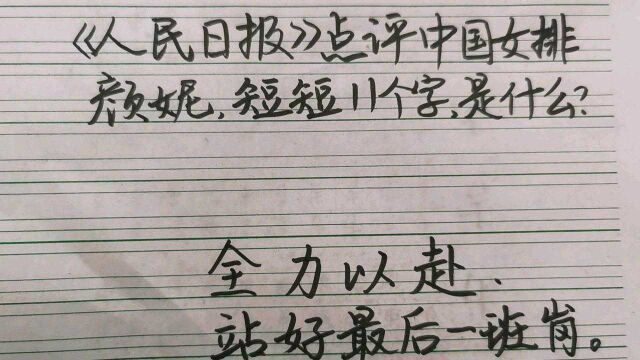 《人民日报》点评中国女排
颜妮,短短11个字,是什么?
全力以赴、
站好最后一班岗。